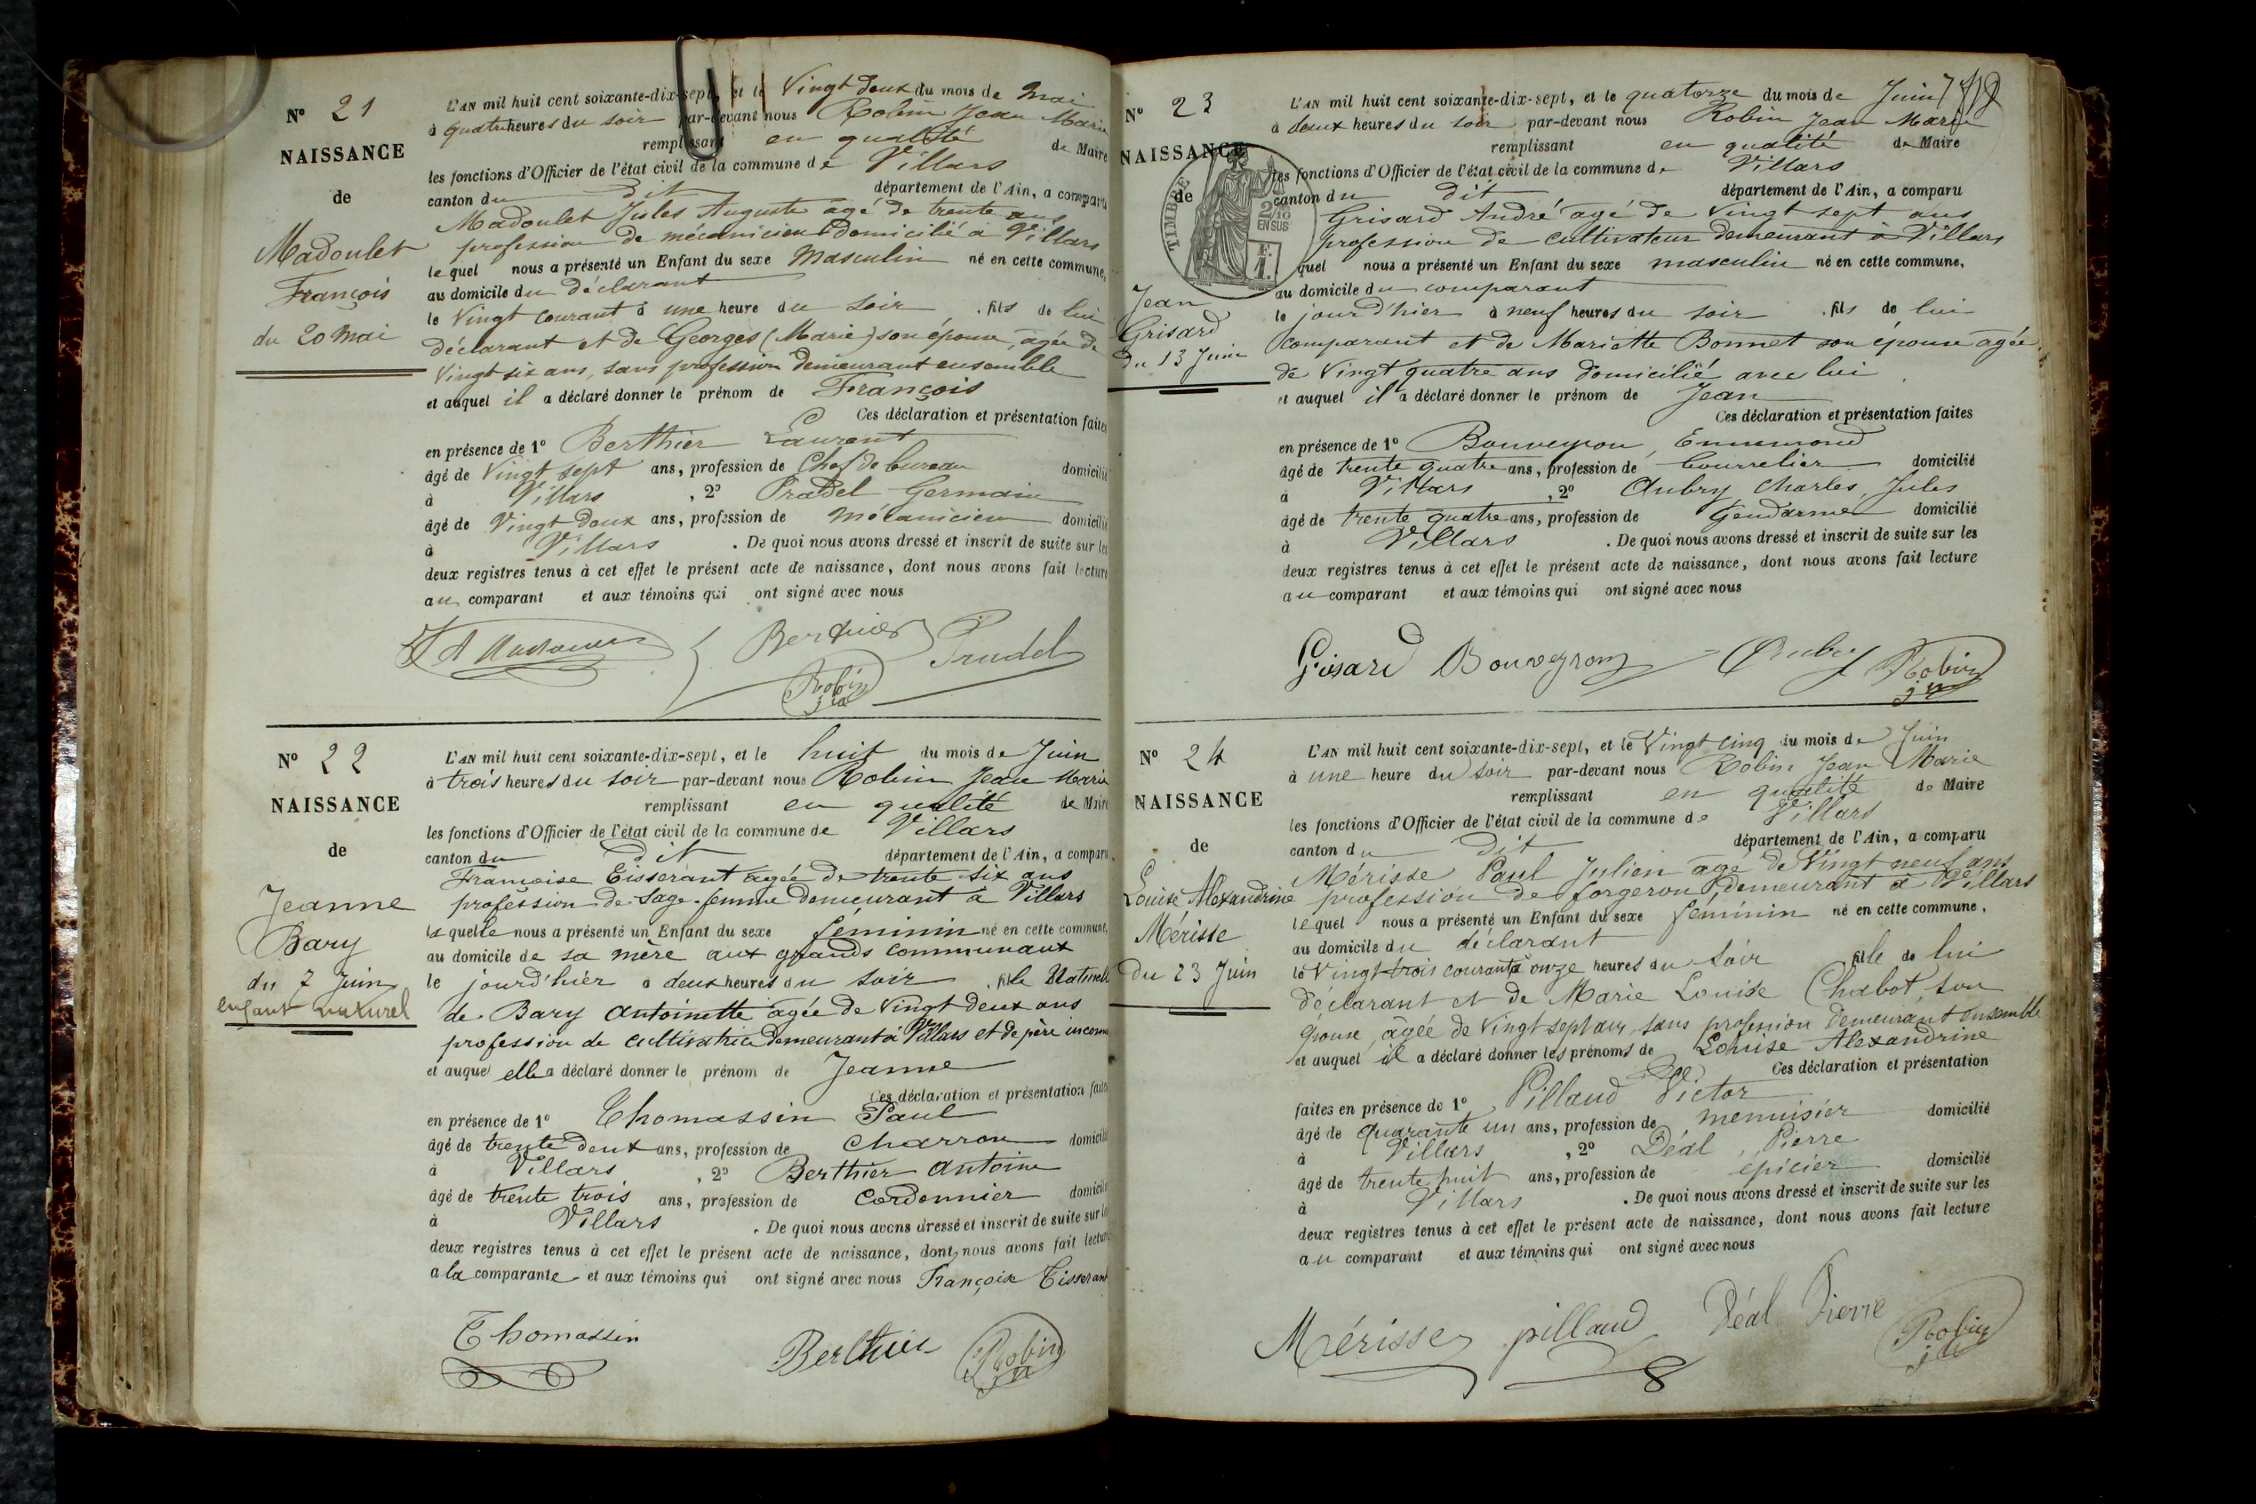 N° 21
NAISSANCE
de
Madoulet
François
du 20 Mai
L'AN mil huit cent soixante-dix-sept, et le Vingt deux du mois de Mai
à quatre heures du soir par-devant nous Robin Jean Marie
remplissant en qualité de Maire
les fonctions d'Officier de l'état civil de la commune de Villars
canton du dit département de l'Ain, a comparu
Madoulet Jules Auguste agé de trente ans
profession de mécanicien domicilié à Villars
lequel nous a présenté un Enfant du sexe Masculin né en cette commune,
au domicile du déclarant
le Vingt courant à une heure du soir . fils de lui
déclarant et de Georges (Marie) son épouse, agée de
Vingt six ans, sans profession demeurant ensemble
et auquel il a déclaré donner le prénom de François
Ces déclaration et présentation faites
en présence de 1° Berthier Laurent
âgé de Vingt sept ans, profession de Chef de bureau domicilié
à Villars , 2° Pradel Germain
âgé de Vingt deux ans, profession de mécanicien domicilié
à Villars . De quoi nous avons dressé et inscrit de suite sur les
deux registres tenus à cet effet le présent acte de naissance, dont nous avons fait lecture
au comparant et aux témoins qui ont signé avec nous
Berthier Pradel
Robin
N° 22
NAISSANCE
de
Jeanne
Bary
du 7 Juin
enfant naturel
L'AN mil huit cent soixante-dix-sept, et le huit du mois de Juin
à trois heures du soir par-devant nous Robin Jean Marie
remplissant en qualité de Maire
les fonctions d'Officier de l'état civil de la commune de Villars
canton du dit département de l'Ain, a comparu
Francoise Tisserant agée de trente six ans
profession de Sage-femme demeurant à Villars
laquelle nous a présenté un Enfant du sexe féminin né en cette commune,
au domicile de sa mère aux grands communaux
le jourd'hier à deux heures du soir . fille Naturelle
de Bary Antoinette agée de Vingt deux ans
profession de cultivatrice demeurant à Villars et de père inconnu
et auquel elle a déclaré donner le prénom de Jeanne
Ces déclaration et présentation faites
en présence de 1° Thomassin Paul
âgé de trente deux ans, profession de Charron domicilié
à Villars , 2° Berthier Antoine
âgé de trente trois ans, profession de Cordonnier domicilié
à Villars . De quoi nous avons dressé et inscrit de suite sur les
deux registres tenus à cet effet le présent acte de naissance, dont nous avons fait lecture
a la comparante et aux témoins qui ont signé avec nous Françoise Tisserant
Thomassin Berthier Robin
N° 23
NAISSANCE
de
TIMBRE
2/10
EN SUS
Jean
Grisard
du 13 Juin
L'AN mil huit cent soixante-dix-sept, et le quatorze du mois de Juin
à deux heures du soir par-devant nous Robin Jean Marie
remplissant en qualité de Maire
les fonctions d'Officier de l'état civil de la commune de Villars
canton du dit département de l'Ain, a comparu
Grisard André agé de Vingt sept ans
profession de cultivateur demeurant à Villars
quel nous a présenté un Enfant du sexe masculin né en cette commune,
au domicile du comparant
le jourd'hier à neuf heures du soir . fils de lui
comparant et de Mariette Bonnet son épouse agée
de Vingt quatre ans domicilié avec lui
et auquel il a déclaré donner le prénom de Jean
Ces déclaration et présentation faites
en présence de 1° Bouveyron, Ennemond
âgé de trente quatre ans, profession de bourrelier domicilié
à Villars , 2° Aubry, Charles, Jules
âgé de trente quatre ans, profession de Gendarme domicilié
à Villars . De quoi nous avons dressé et inscrit de suite sur les
deux registres tenus à cet effet le présent acte de naissance, dont nous avons fait lecture
au comparant et aux témoins qui ont signé avec nous
Grisard Bouveyron Aubry Robin
N° 24
NAISSANCE
de
Louise Alexandrine
Mérisse
du 23 Juin
L'AN mil huit cent soixante-dix-sept, et le Vingt cinq du mois de Juin
à une heure du soir par-devant nous Robin Jean Marie
remplissant en qualité de Maire
les fonctions d'Officier de l'état civil de la commune de Villars
canton du dit département de l'Ain, a comparu
Mérisse Paul Julien agé de Vingt neuf ans
profession de forgeron, demeurant à Villars
lequel nous a présenté un Enfant du sexe féminin né en cette commune,
au domicile du déclarant
le Vingt-trois courant à onze heures du soir fille de lui
déclarant et de Marie Louise Chabot, son
épouse, agée de Vingt sept ans, sans profession demeurant ensemble
et auquel il a déclaré donner les prénoms de Louise Alexandrine
Ces déclaration et présentation
faites en présence de 1° Pilland Victor
âgé de quarante un ans, profession de menuisier domicilié
à Villars , 2° Déal, Pierre
âgé de trente huit ans, profession de épicier domicilié
à Villars . De quoi nous avons dressé et inscrit de suite sur les
deux registres tenus à cet effet le présent acte de naissance, dont nous avons fait lecture
au comparant et aux témoins qui ont signé avec nous
Mérisse pilland Déal Pierre Robin